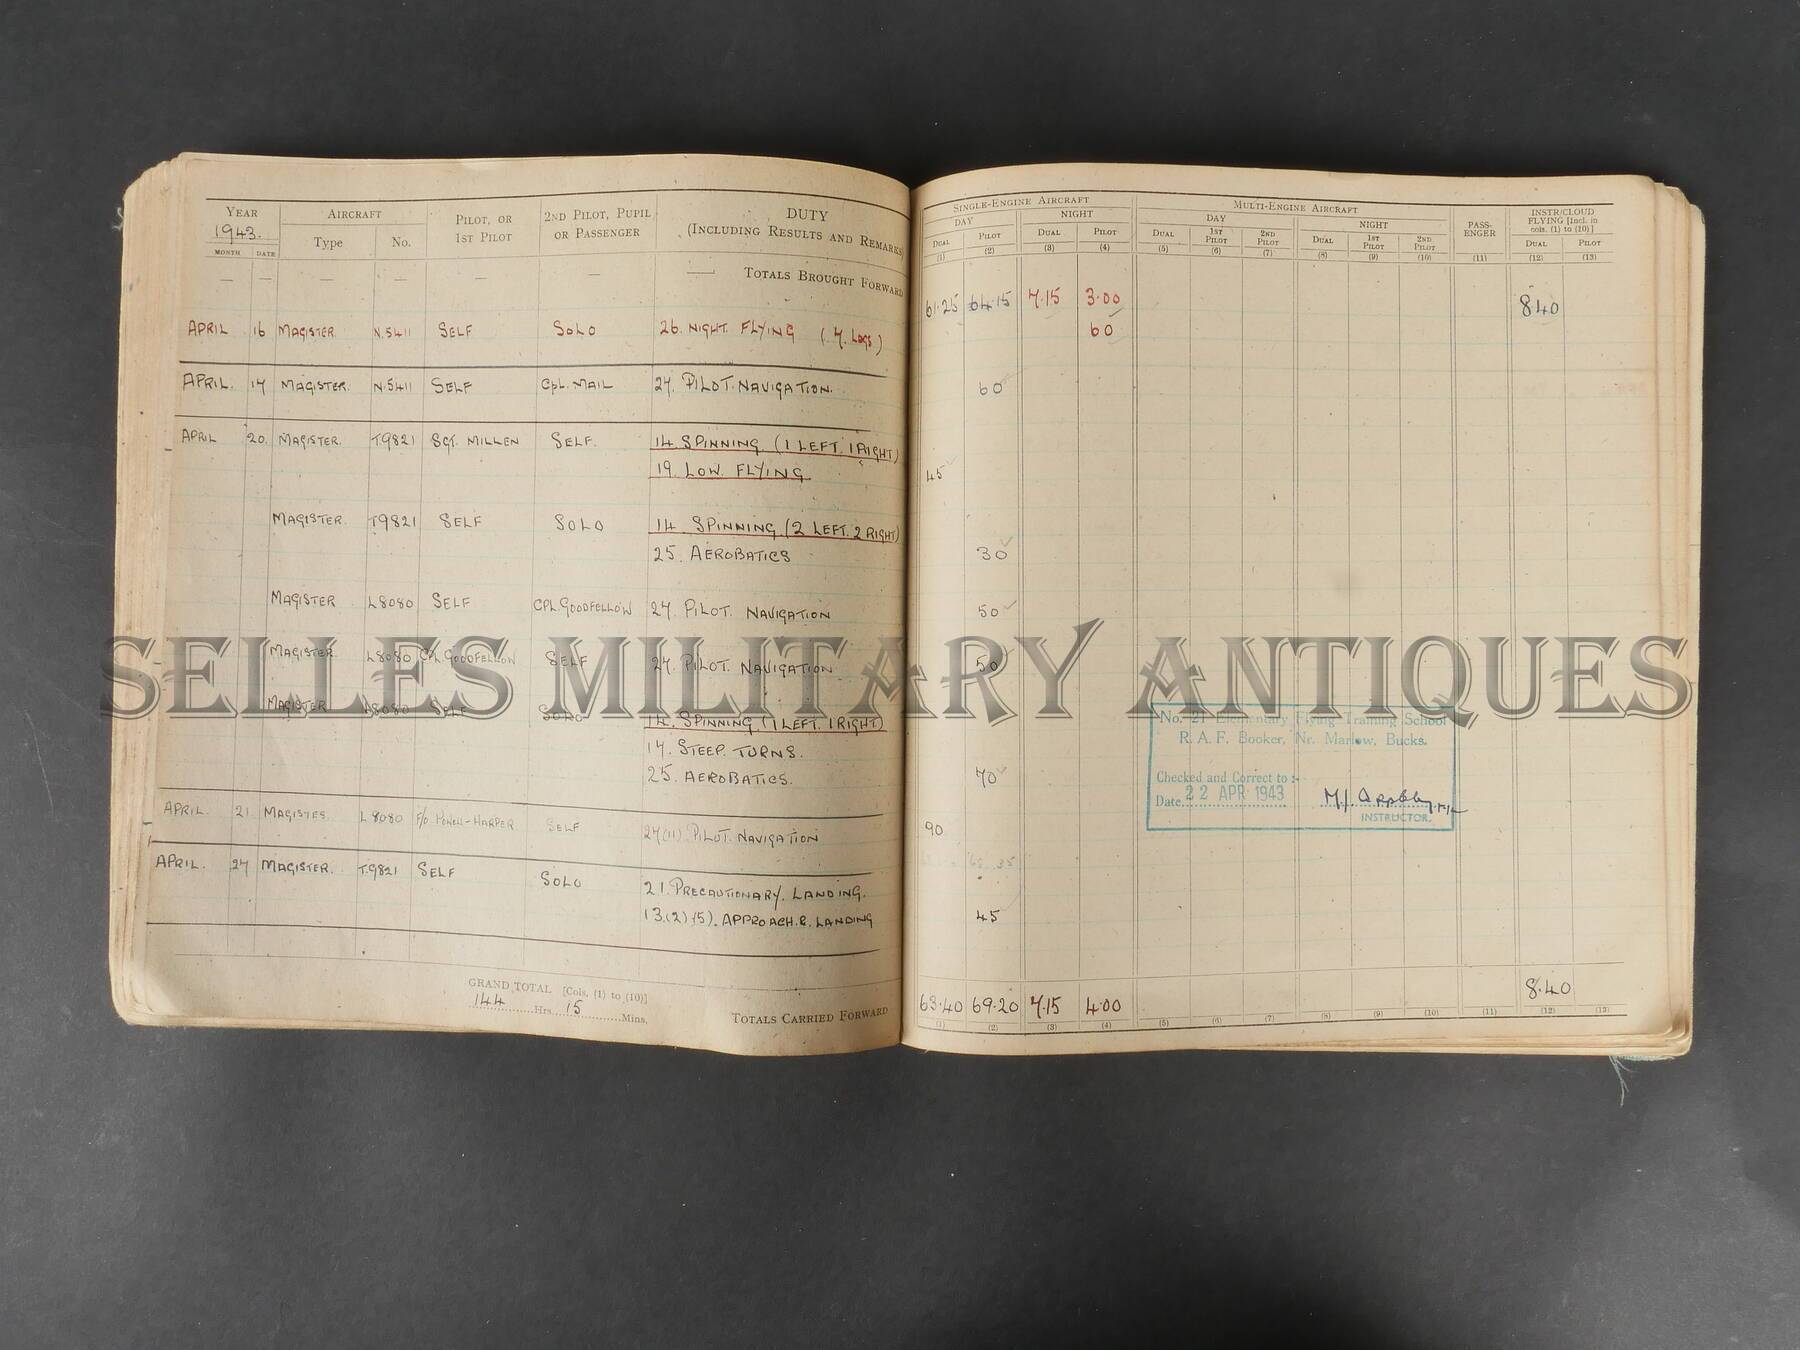 YEAR AIRCRAFT PILOT, OR 1ST PILOT 2ND PILOT, PUPIL OR PASSENGER DUTY (INCLUDING RESULTS AND REMARKS)
1943. Type No.
MONTH DATE
— — — — — — — TOTALS BROUGHT FORWARD
APRIL 16 MAGISTER. N.5411 SELF SOLO 26. NIGHT. FLYING (7. LDGS.)
APRIL. 17 MAGISTER. N.5411 SELF CPL. MAIL 27. PILOT. NAVIGATION.
APRIL 20. MAGISTER. T.9821 SGT. MILLEN SELF. 14. SPINNING. (1 LEFT. 1 RIGHT)
19. LOW. FLYING
MAGISTER. T9821 SELF SOLO 14. SPINNING. (2 LEFT. 2 RIGHT)
25. AEROBATICS
MAGISTER L8080 SELF CPL. GOODFELLOW 27. PILOT. NAVIGATION
MAGISTER. L8080 CPL. GOODFELLOW SELF 27. PILOT. NAVIGATION
MAGISTER L8080 SELF SOLO 14. SPINNING. (1 LEFT. 1 RIGHT)
17. STEEP. TURNS.
25. AEROBATICS.
APRIL. 21. MAGISTER. L8080 F/O POWELL-HARPER SELF 27(11) PILOT. NAVIGATION
APRIL. 27 MAGISTER. T.9821 SELF SOLO 21. PRECAUTIONARY. LANDING.
13.(2)(5). APPROACH. & LANDING
GRAND TOTAL [Cols. (1) to (10)]
144 Hrs. 15 Mins.
TOTALS CARRIED FORWARD
SINGLE-ENGINE AIRCRAFT MULTI-ENGINE AIRCRAFT PASSENGER INSTR/CLOUD FLYING [Incl. in cols. (1) to (10)]
DAY NIGHT DAY NIGHT
DUAL PILOT DUAL PILOT DUAL 1ST PILOT 2ND PILOT DUAL 1ST PILOT 2ND PILOT DUAL PILOT
(1) (2) (3) (4) (5) (6) (7) (8) (9) (10) (11) (12) (13)
61.25 64.15 7.15 3.00 8.40
60
60
45
30
50
50
70
90
45
No. 21 Elementary Flying Training School
R. A. F. Booker, Nr. Marlow, Bucks.
Checked and Correct to :-
Date 22 APR 1943
INSTRUCTOR.
63.40 69.20 7.15 4.00 8.40
(1) (2) (3) (4) (5) (6) (7) (8) (9) (10) (11) (12) (13)
SELLES MILITARY ANTIQUES